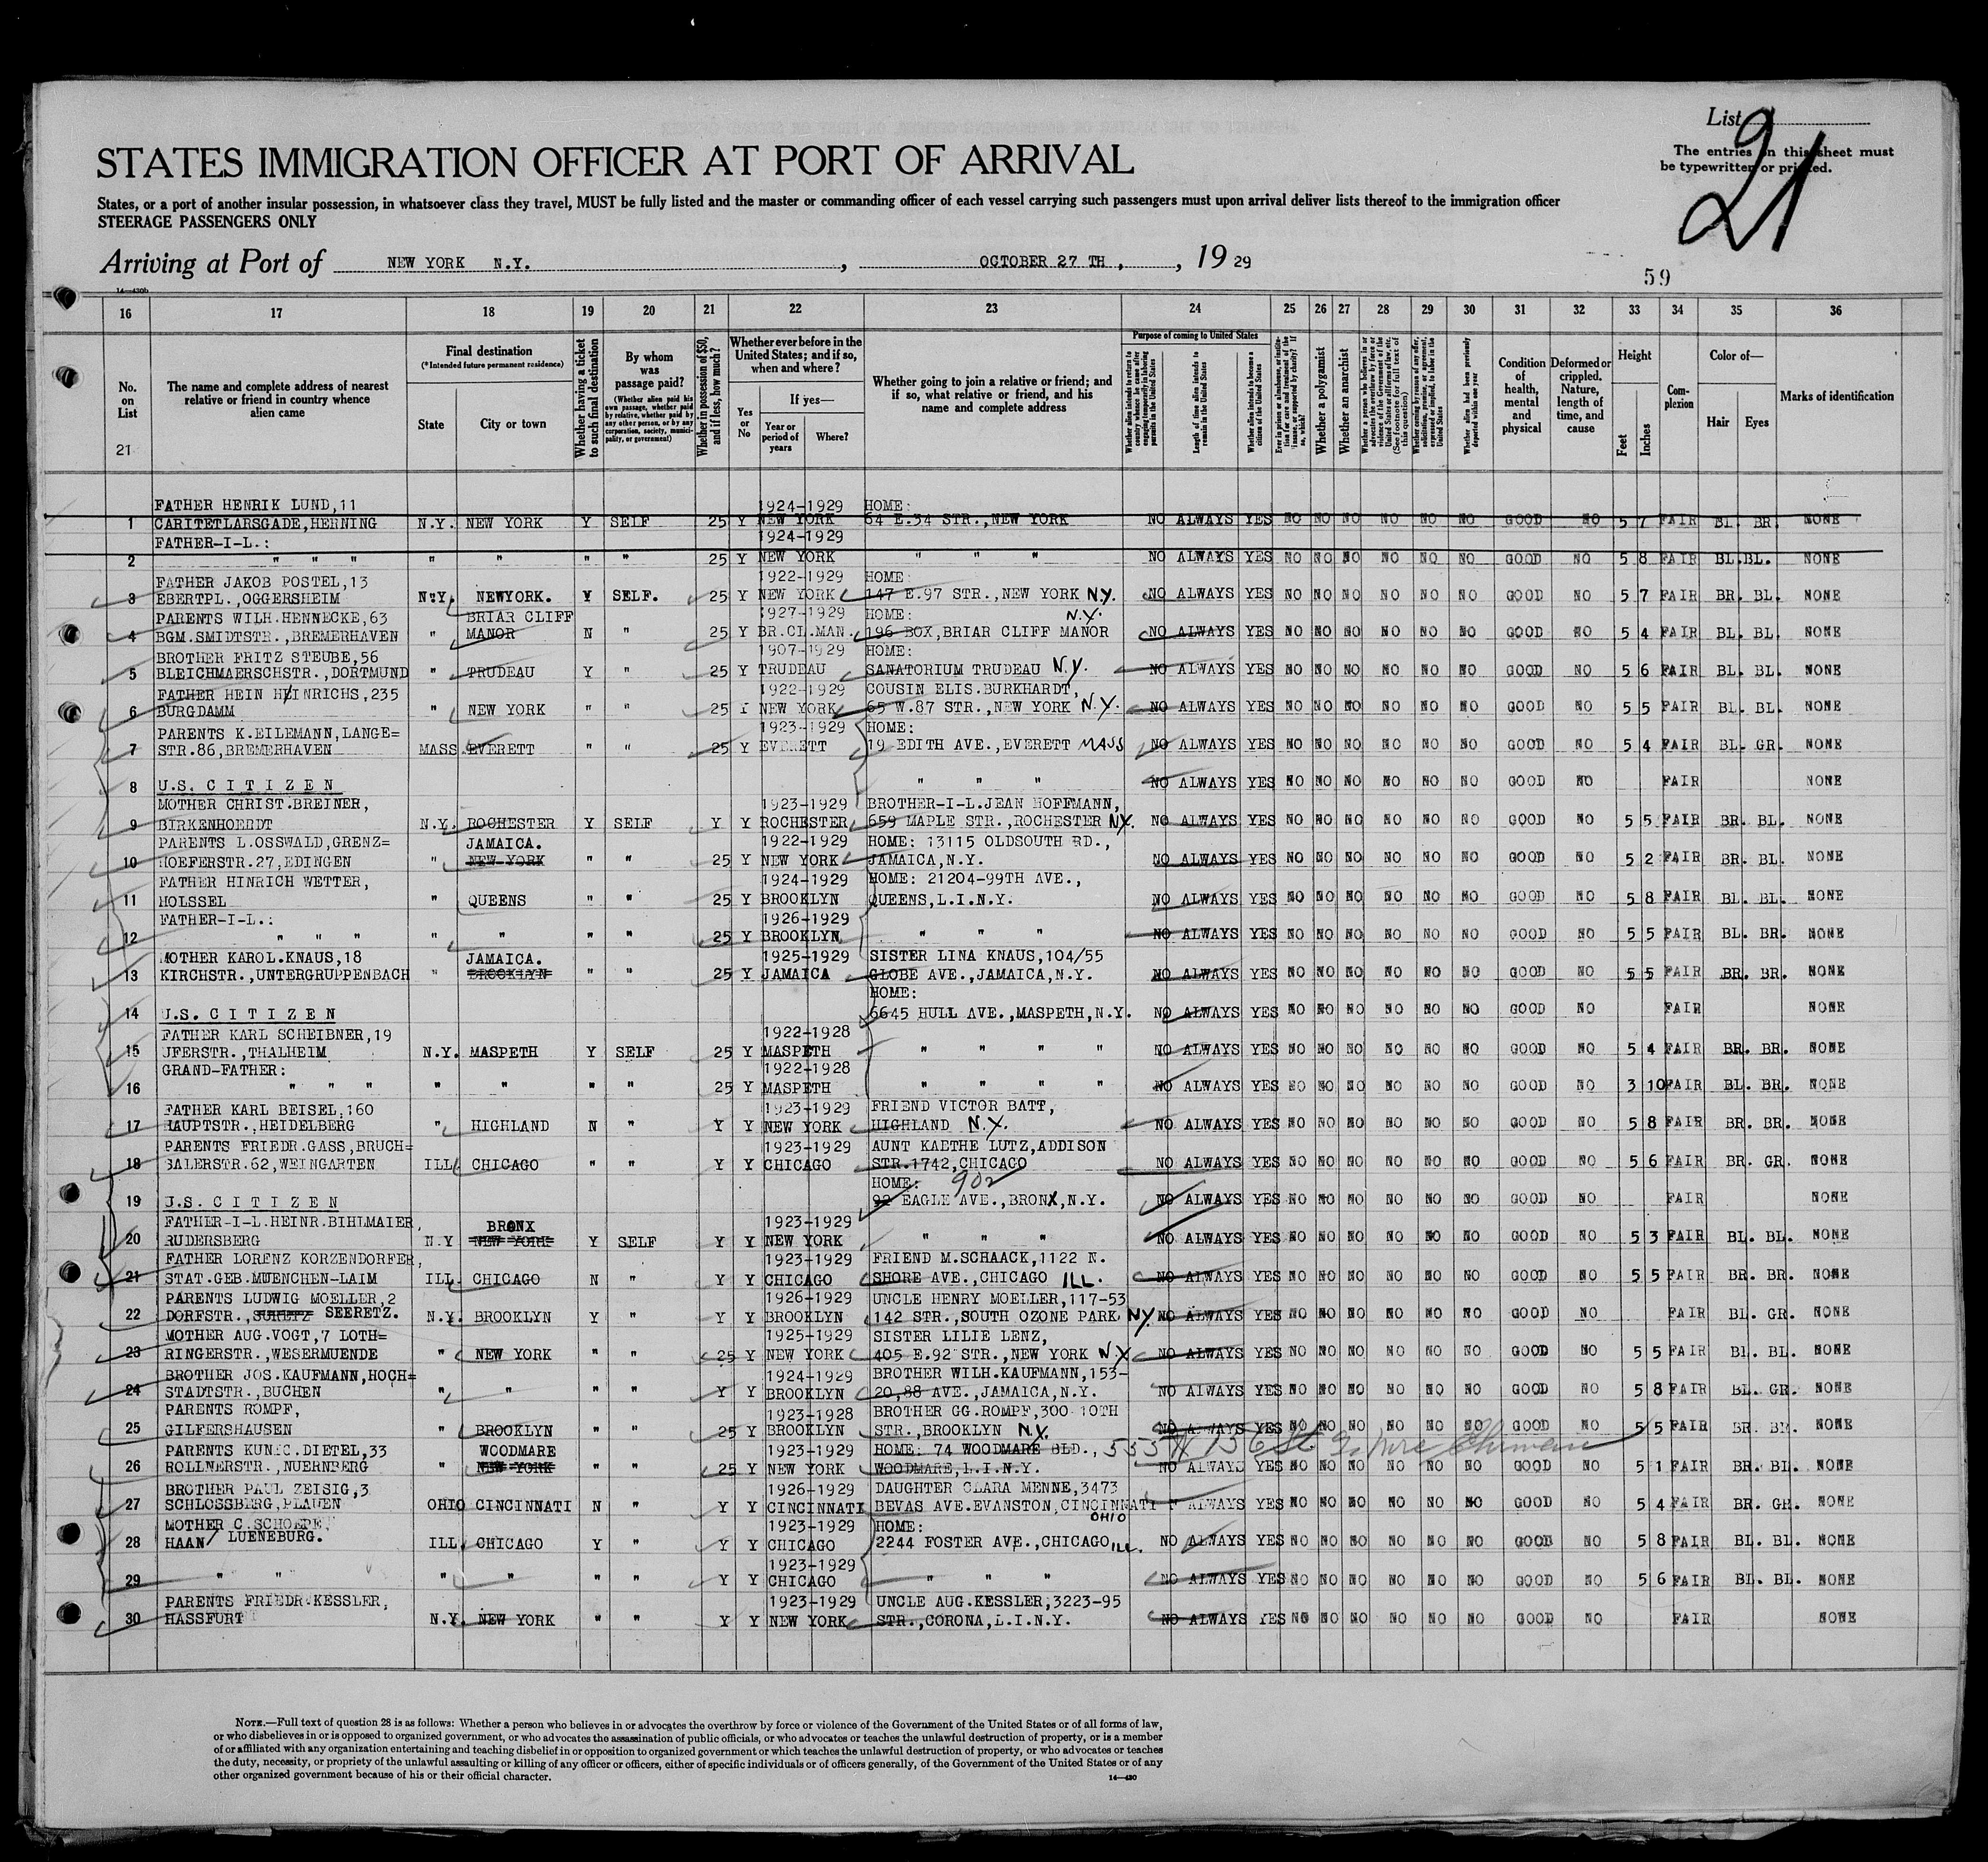 List 21
The entries on this sheet must
be typewritten or printed.
STATES IMMIGRATION OFFICER AT PORT OF ARRIVAL
States, or a port of another insular possession, in whatsoever class they travel, MUST be fully listed and the master or commanding officer of each vessel carrying such passengers must upon arrival deliver lists thereof to the immigration officer
STEERAGE PASSENGERS ONLY
Arriving at Port of NEW YORK N.Y., OCTOBER 27 TH, , 19 29
59
14—430b
16 17 18 19 20 21 22 23 24 25 26 27 28 29 30 31 32 33 34 35 36
No. on List
21
The name and complete address of nearest relative or friend in country whence alien came
Final destination
(*Intended future permanent residence)
State
City or town
Whether having a ticket to such final destination
By whom was passage paid?
(Whether alien paid his own passage, whether paid by relative, whether paid by any other person, or by any corporation, society, municipality, or government)
Whether in possession of $50, and if less, how much?
Whether ever before in the United States; and if so, when and where?
Yes or No
If yes—
Year or period of years
Where?
Whether going to join a relative or friend; and if so, what relative or friend, and his name and complete address
Purpose of coming to United States
Length of time alien intends to remain in the United States
Whether alien intends to become a citizen of the United States
Whether a polygamist
Whether an anarchist
Whether alien had been previously deported within one year
Condition of health, mental and physical
Deformed or crippled. Nature, length of time, and cause
Height
Feet
Inches
Complexion
Color of—
Hair
Eyes
Marks of identification
FATHER HENRIK LUND,11 1924-1929 HOME:
1 CARITETLARSGADE,HERNING N.Y. NEW YORK Y SELF 25 Y NEW YORK 64 E.34 STR.,NEW YORK NO ALWAYS YES NO NO NO NO NO NO GOOD NO 5 7 FAIR BL. BR. NONE
FATHER-I-L.: 1924-1929
2 " " " " " " " 25 Y NEW YORK " " " NO ALWAYS YES NO NO NO NO NO NO GOOD NO 5 8 FAIR BL. BL. NONE
FATHER JAKOB POSTEL,13 1922-1929 HOME:
3 EBERTPL.,OGGERSHEIM N.Y. NEWYORK. Y SELF. 25 Y NEW YORK 147 E.97 STR.,NEW YORK N.Y. NO ALWAYS YES NO NO NO NO NO NO GOOD NO 5 7 FAIR BR. BL. NONE
PARENTS WILH.HENNECKE,63 BRIAR CLIFF 1927-1929 HOME: N.Y.
4 BGM.SMIDTSTR.,BREMERHAVEN " MANOR N " 25 Y BR.CL.MAN. 196 BOX,BRIAR CLIFF MANOR NO ALWAYS YES NO NO NO NO NO NO GOOD NO 5 4 FAIR BL. BL. NONE
BROTHER FRITZ STEUBE,56 1907-1929 HOME:
5 BLEICHMAERSCHSTR.,DORTMUND " TRUDEAU Y " 25 Y TRUDEAU SANATORIUM TRUDEAU N.Y. NO ALWAYS YES NO NO NO NO NO NO GOOD NO 5 6 FAIR BL. BL. NONE
FATHER HEIN HEINRICHS,235 1922-1929 COUSIN ELIS.BURKHARDT,
6 BURGDAMM " NEW YORK " " 25 Y NEW YORK 65 W.87 STR.,NEW YORK N.Y. NO ALWAYS YES NO NO NO NO NO NO GOOD NO 5 5 FAIR BL. BL. NONE
PARENTS K.EILEMANN,LANGE= 1923-1929 HOME:
7 STR.86,BREMERHAVEN MASS. EVERETT " " 25 Y EVERETT 19 EDITH AVE.,EVERETT MASS NO ALWAYS YES NO NO NO NO NO NO GOOD NO 5 4 FAIR BL. GR. NONE
8 U.S. C I T I Z E N " " " NO ALWAYS YES NO NO NO NO NO NO GOOD NO FAIR NONE
MOTHER CHRIST.BREINER, 1923-1929 BROTHER-I-L.JEAN HOFFMANN,
9 BIRKENHOERDT N.Y. ROCHESTER Y SELF Y Y ROCHESTER 659 MAPLE STR.,ROCHESTER NY. NO ALWAYS YES NO NO NO NO NO NO GOOD NO 5 5 FAIR BR. BL. NONE
PARENTS L.OSSWALD,GRENZ= JAMAICA. 1922-1929 HOME: 13115 OLDSOUTH RD.,
10 HOEFERSTR.27,EDINGEN " NEW YORK " " 25 Y NEW YORK JAMAICA,N.Y. NO ALWAYS YES NO NO NO NO NO NO GOOD NO 5 2 FAIR BR. BL. NONE
FATHER HINRICH WETTER, 1924-1929 HOME: 21204-99TH AVE.,
11 HOLSSEL " QUEENS " " 25 Y BROOKLYN QUEENS,L.I.N.Y. NO ALWAYS YES NO NO NO NO NO NO GOOD NO 5 8 FAIR BL. BL. NONE
FATHER-I-L.: 1926-1929
12 " " " " " " " 25 Y BROOKLYN " " " NO ALWAYS YES NO NO NO NO NO NO GOOD NO 5 5 FAIR BL. BR. NONE
MOTHER KAROL.KNAUS,18 JAMAICA. 1925-1929 SISTER LINA KNAUS,104/55
13 KIRCHSTR.,UNTERGRUPPENBACH " BROOKLYN " " 25 Y JAMAICA GLOBE AVE.,JAMAICA,N.Y. NO ALWAYS YES NO NO NO NO NO NO GOOD NO 5 5 FAIR BR. BR. NONE
HOME:
14 U.S. C I T I Z E N 6645 HULL AVE.,MASPETH,N.Y. NO ALWAYS YES NO NO NO NO NO NO GOOD NO FAIR NONE
FATHER KARL SCHEIBNER,19 1922-1928
15 UFERSTR.,THALHEIM N.Y. MASPETH Y SELF 25 Y MASPETH " " " " NO ALWAYS YES NO NO NO NO NO NO GOOD NO 5 4 FAIR BR. BR. NONE
GRAND-FATHER: 1922-1928
16 " " " " " " " 25 Y MASPETH " " " " NO ALWAYS YES NO NO NO NO NO NO GOOD NO 3 10 FAIR BL. BR. NONE
FATHER KARL BEISEL,160 1923-1929 FRIEND VICTOR BATT,
17 HAUPTSTR.,HEIDELBERG " HIGHLAND N " Y Y NEW YORK HIGHLAND N.Y. NO ALWAYS YES NO NO NO NO NO NO GOOD NO 5 8 FAIR BR. BR. NONE
PARENTS FRIEDR.GASS,BRUCH= 1923-1929 AUNT KAETHE LUTZ,ADDISON
18 SALERSTR.62,WEINGARTEN ILL. CHICAGO " " Y Y CHICAGO STR.1742,CHICAGO NO ALWAYS YES NO NO NO NO NO NO GOOD NO 5 6 FAIR BR. GR. NONE
HOME: 902
19 U.S. C I T I Z E N 92 EAGLE AVE.,BRONX,N.Y. NO ALWAYS YES NO NO NO NO NO NO GOOD NO FAIR NONE
FATHER-I-L.HEINR.BIHLMAIER, BRONX 1923-1929
20 RUDERSBERG N.Y NEW YORK Y SELF Y Y NEW YORK " " " NO ALWAYS YES NO NO NO NO NO NO GOOD NO 5 3 FAIR BL. BL. NONE
FATHER LORENZ KORZENDORFER, 1923-1929 FRIEND M.SCHAACK,1122 N.
21 STAT.GEB.MUENCHEN-LAIM ILL. CHICAGO N " Y Y CHICAGO SHORE AVE.,CHICAGO ILL. NO ALWAYS YES NO NO NO NO NO NO GOOD NO 5 5 FAIR BR. BR. NONE
PARENTS LUDWIG MOELLER,2 1926-1929 UNCLE HENRY MOELLER,117-53
22 DORFSTR., SEERETZ. N.Y. BROOKLYN Y " Y Y BROOKLYN 142 STR.,SOUTH OZONE PARK NY. NO ALWAYS YES NO NO NO NO NO NO GOOD NO FAIR BL. GR. NONE
MOTHER AUG.VOGT,7 LOTH= 1925-1929 SISTER LILIE LENZ,
23 RINGERSTR.,WESERMUENDE " NEW YORK " " 25 Y NEW YORK 405 E.92 STR.,NEW YORK N.Y. NO ALWAYS YES NO NO NO NO NO NO GOOD NO 5 5 FAIR BL. BL. NONE
BROTHER JOS.KAUFMANN,HOCH= 1924-1929 BROTHER WILH.KAUFMANN,153-
24 STADTSTR.,BUCHEN " " " " Y Y BROOKLYN 20,88 AVE.,JAMAICA,N.Y. NO ALWAYS YES NO NO NO NO NO NO GOOD NO 5 8 FAIR BL. GR. NONE
PARENTS ROMPF, 1923-1928 BROTHER GG.ROMPF,300 10TH
25 GILFERSHAUSEN " BROOKLYN " " 25 Y BROOKLYN STR.,BROOKLYN N.Y. NO ALWAYS YES NO NO NO NO NO NO GOOD NO 5 5 FAIR BR. NONE
PARENTS DIETEL,33 WOODMARE 1923-1929 HOME: 74 WOODMARE BLD., 555 W 156 St
26 ROLLNERSTR.,NUERNBERG " NEW YORK " " 25 Y NEW YORK WOODMARE,L.I.N.Y. NO ALWAYS YES NO NO NO NO NO NO GOOD NO 5 1 FAIR BR. BL. NONE
BROTHER PAUL ZEISIG,3 1926-1929 DAUGHTER CLARA MENNE,3473
27 SCHLOSSBERG,PLAUEN OHIO CINCINNATI N " Y Y CINCINNATI BEVAS AVE.EVANSTON,CINCINNATI OHIO ALWAYS YES NO NO NO NO NO NO GOOD NO 5 4 FAIR BR. GR. NONE
MOTHER C.SCHOEPE, 1923-1929 HOME:
28 HAAN/ LUENEBURG. ILL. CHICAGO Y " Y Y CHICAGO 2244 FOSTER AVE.,CHICAGO ILL. NO ALWAYS YES NO NO NO NO NO NO GOOD NO 5 8 FAIR BL. BL. NONE
1923-1929
29 " " " " " " Y Y CHICAGO " " " NO ALWAYS YES NO NO NO NO NO NO GOOD NO 5 6 FAIR BL. BL. NONE
PARENTS FRIEDR.KESSLER, 1923-1929 UNCLE AUG.KESSLER,3223-95
30 HASSFURT N.Y. NEW YORK " " Y Y NEW YORK STR.,CORONA,L.I.N.Y. NO ALWAYS YES NO NO NO NO NO NO GOOD NO FAIR NONE
NOTE.—Full text of question 28 is as follows: Whether a person who believes in or advocates the overthrow by force or violence of the Government of the United States or of all forms of law,
or who disbelieves in or is opposed to organized government, or who advocates the assassination of public officials, or who advocates or teaches the unlawful destruction of property, or is a member
of or affiliated with any organization entertaining and teaching disbelief in or opposition to organized government or which teaches the unlawful destruction of property, or who advocates or teaches
the duty, necessity, or propriety of the unlawful assaulting or killing of any officer or officers, either of specific individuals or of officers generally, of the Government of the United States or of any
other organized government because of his or their official character.
14—430